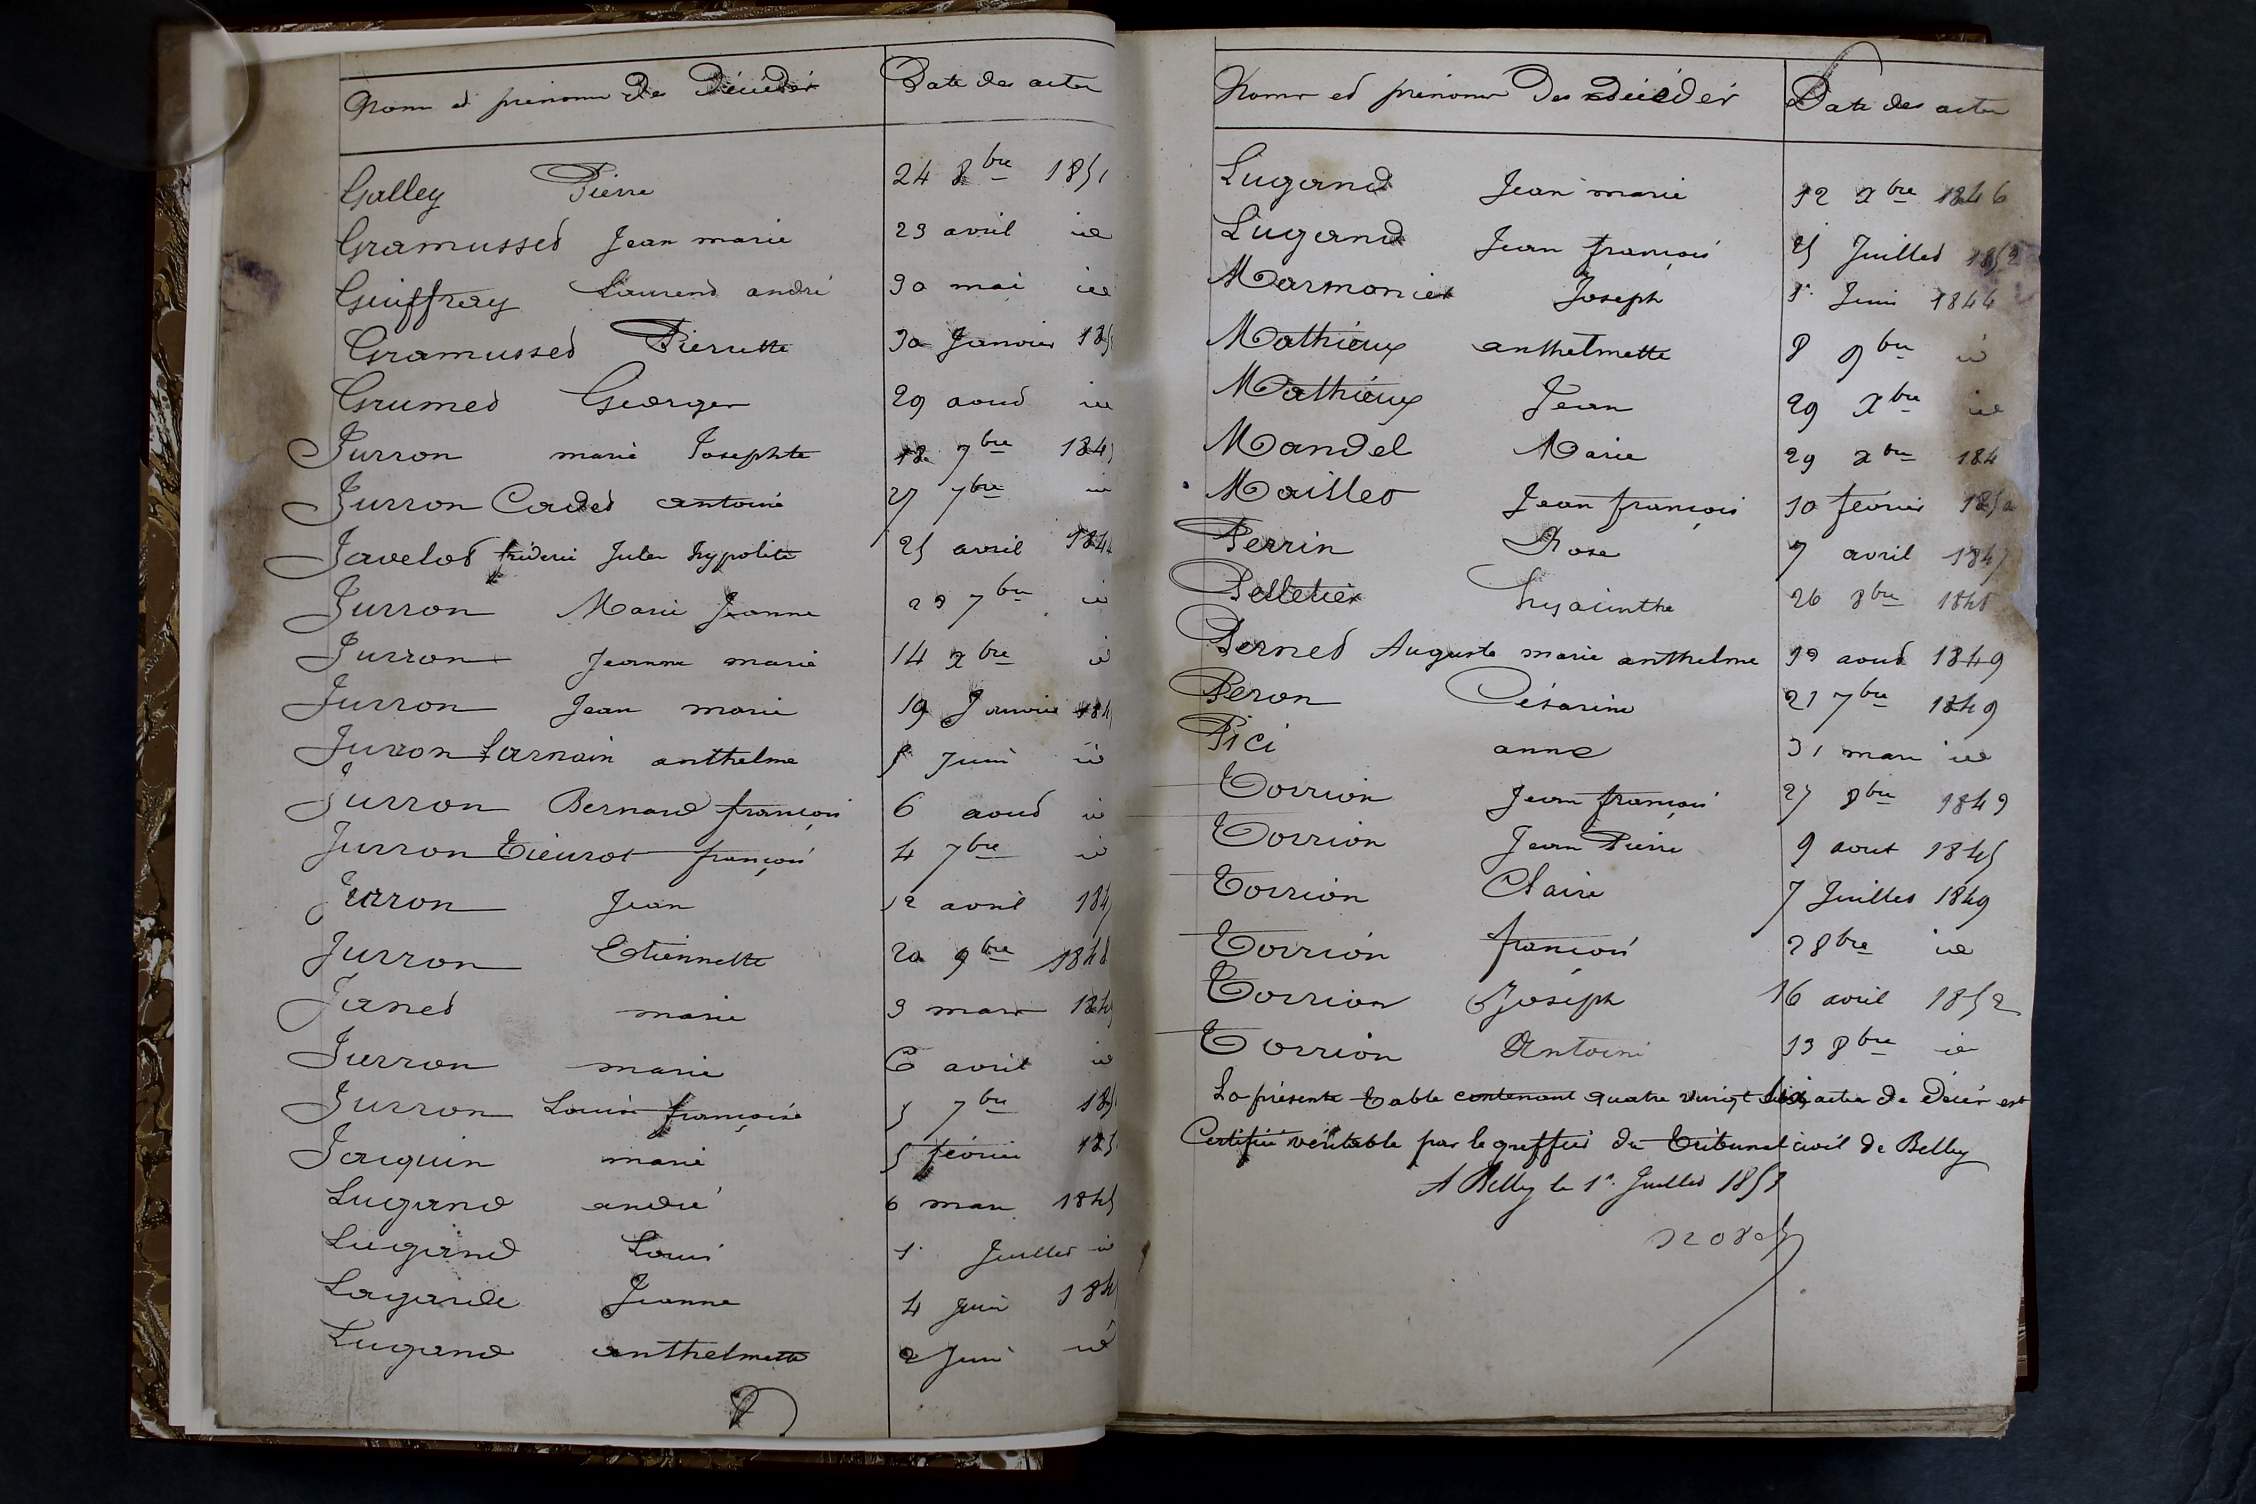 Noms et prénoms des Décédés Date des actes
Galley Pierre 24 8bre 1851
Gramusset Jean marie 23 avril id
Guiffrey Laurent andré 30 mai id
Gramusset Pierrette 30 Janvier 185
Grumet Georges 29 aout id
Jurron marie Josephte 18 7bre 184
Jurron Cadet antoine 27 7bre id
Javelot fréderic Jules hypolite 25 avril 1844
Jurron Marie Jeanne 23 7bre id
Jurron Jeanne marie 14 Xbre id
Jurron Jean marie 19 Janvier 184
Jurron Larnain anthelme 5 Juin id
Jurron Bernard françois 6 aout id
Jurron Tieurot françois 4 7bre id
Jurron Jean 12 avril 184
Jurron Etiennette 20 9bre 1848
Janet marie 3 mars 184
Jurron marie 6 avril id
Jurron Louise françoise 5 7bre 185
Jacquin marie 5 février 185
Lugand andré 6 mars 1845
Lugand Louis 1r Juillet id
Lagarde Jeanne 4 Juin 184
Lugand anthelmette 2 Juin id
Noms et prénoms des Décédés Date des actes
Lugand Jean marie 12 Xbre 1846
Lugand Jean françois 25 Juillet 1852
Marmonier Joseph 1r Juin 1844
Mathieux anthelmette 8 9bre id
Mathieux Jean 29 Xbre id
Mandel Marie 29 Xbre 184
Maillet Jean françois 10 février 1852
Perrin Rose 7 avril 1847
Pelletier hyacinthe 26 8bre 1848
Pernet Auguste marie anthelme 19 aout 1849
Peron Césarine 21 7bre 1849
Pici anne 31 mars id
Torrion Jean françois 27 8bre 1843
Torrion Jean Pierre 9 aout 1845
Torrion Claire 7 Juillet 1849
Torrion françois 2 8bre id
Torrion Joseph 16 avril 1852
Torrion Antoine 13 8bre id
La présente table contenant quatre vingt actes de décès est
Certifiée véritable par le greffier du tribunal civil de Belley
A Belley le 1r Juillet 1853